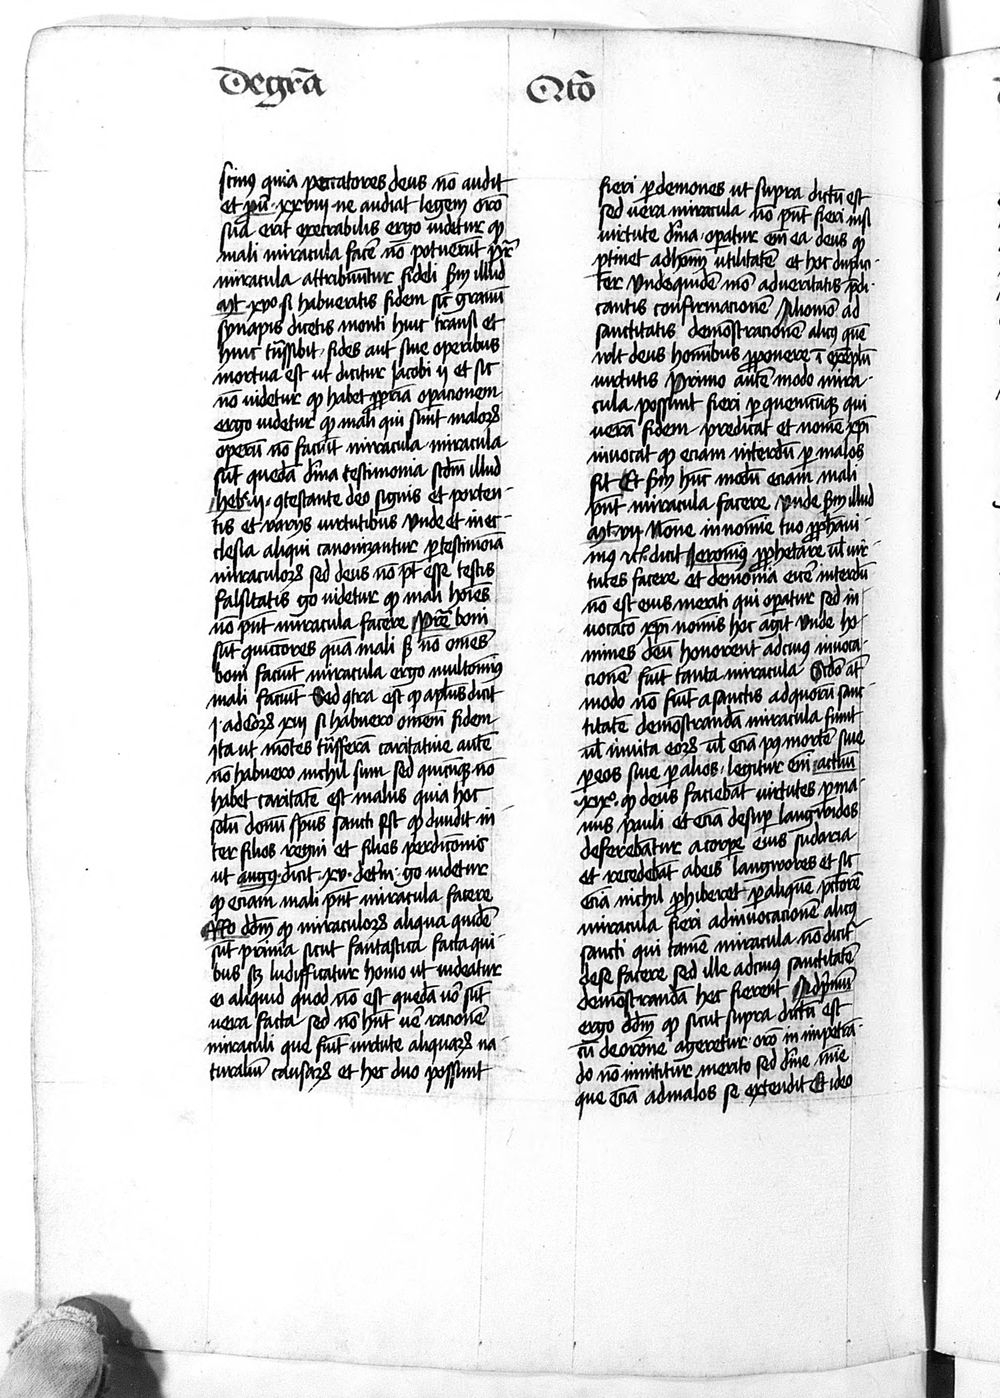 De gr̄a
Q̄tō
scimꝰ quia peccatores deus nō audit
et pͥu. xxviij ne audiat legem or̄o
sua erit execrabilis ergo videtur ꝙ
mali miracula facē nō potuerūt
miracula attribuūtur fidei scdm illud
mt xvo si habueritis fidem sic̄ granū
synapis dicetis monti huic transi et
huic trāssibit. fides aut sine operibus
mortua est ut dicitur Jacobi ij et sic
nō videtur ꝙ habet ꝓpriā operacionem
ergo videtur ꝙ mali qui sunt malorꝫ
operū nō faciūt miracula miracula
sūt quedā diīna testimonia scdm illud
heb. ij. ꝯtestante deo signis et porten-
tis et varijs virtutibus Vnde et in ec-
clesia aliqui canonizantur ꝑ testimoīa
miraculorꝫ sed deus nō pt̄ esse testis
falsitatis gͦ videtur ꝙ mali hoīes
nō pn̄t miracula facere Pret̄ boni
sūt ꝯiūctiores quā mali sꝫ nō omēs
boni faciūt miracula ergo multominꝰ
mali faciūt Sed ꝯtra est ꝙ apl̄us dicit
j. ad Corꝫ xiij si habuero omem̄ fidem
ita ut mōtes trāsferā caritatem autē
nō habuero nichil sum sed quicūqꝫ nō
habet caritatē est malus quia hoc
solū donū sp̄us sancti est ꝙ diuidit in
ter filios regni et filios perdicōnis
ut augꝰ. dicit. xv. de tri. gͦ videtur
ꝙ eciam mali pn̄t miracula facere
Rn̄o dd̄m ꝙ miraculorꝫ aliqua quidē
sūt prima sicut fantastica facta qui
bus sꝫ ludifficatur homo ut videatur
ei aliquid quod nō est quedā vͦ sūt
vera facta sed nō hn̄t verē racionē
miraculi que fiūt virtute aliquarꝫ na-
turaliū causarꝫ et hec duo possunt
fieri ꝑ demones ut supra dictū est
sed vera miracula nō pn̄t fieri nisi
virtute diīna. opatur eīm ea deus ꝙ
ptinet ad hoīm utilitatē et hoc duplici-
ter Vno quidem mō ad veritatis p̄di-
cantis confirmacionē Aliomō ad
sanctitatis demōstracionē alicꝰ quē
vult deus hominibus ꝓponere ī exēplū
virtutis Primo autē modo mira-
cula possunt fieri ꝑ quemcūqꝫ qui
verā fidem predicat et nomē xp̄i
inuocat ꝙ eciam interdū ꝑ malos
fit Et scdm hūc modū eciam mali
pn̄t miracula facere Vnde scdm illud
mt. vij Nōne in noīme tuo ꝓphaui-
mꝰ ⁊c̄. dicit Jeronimꝰ ꝓphetare ul̄ vir-
tutes facere et demonia eicē interdū
nō est eius meriti qui opatur sed in
uocaco xp̄i nomīs hoc agit Vnde ho-
mines deū honorent ad cuius inuoca-
cionē fiūt tanta miracula Scdo at̄
modo nō fiūt a sanctis ad quorū sanc-
titatē demōstrandā miracula fiunt
ul̄ in vita eorꝫ ul̄ eciā pꝰ mortē siue
ꝑ eos siue ꝑ alios. legitur eīm actuū
xixo. ꝙ deus faciebat virtutes ꝑ ma-
nus pauli et eciā desup languidos
deferebātur a corpe eius sudaria
et recedebāt ab eis langwores et sic
eciā nichil ꝓhiberet ꝑ aliquē pctorē
miracula fieri ad inuocacionē alicꝰ
sancti qui tamē miracula nō dicit̄
de se facere sed ille ad cuius sanctitatē
demōstrandā hec fierent Ad p̄mū
ergo dd̄m ꝙ sicut supra dictū est
cū de or̄one ageretur. or̄o in impetrā-
do nō innititur merito sed diīne m̄ie
que eciā ad malos se extendit Et ideo